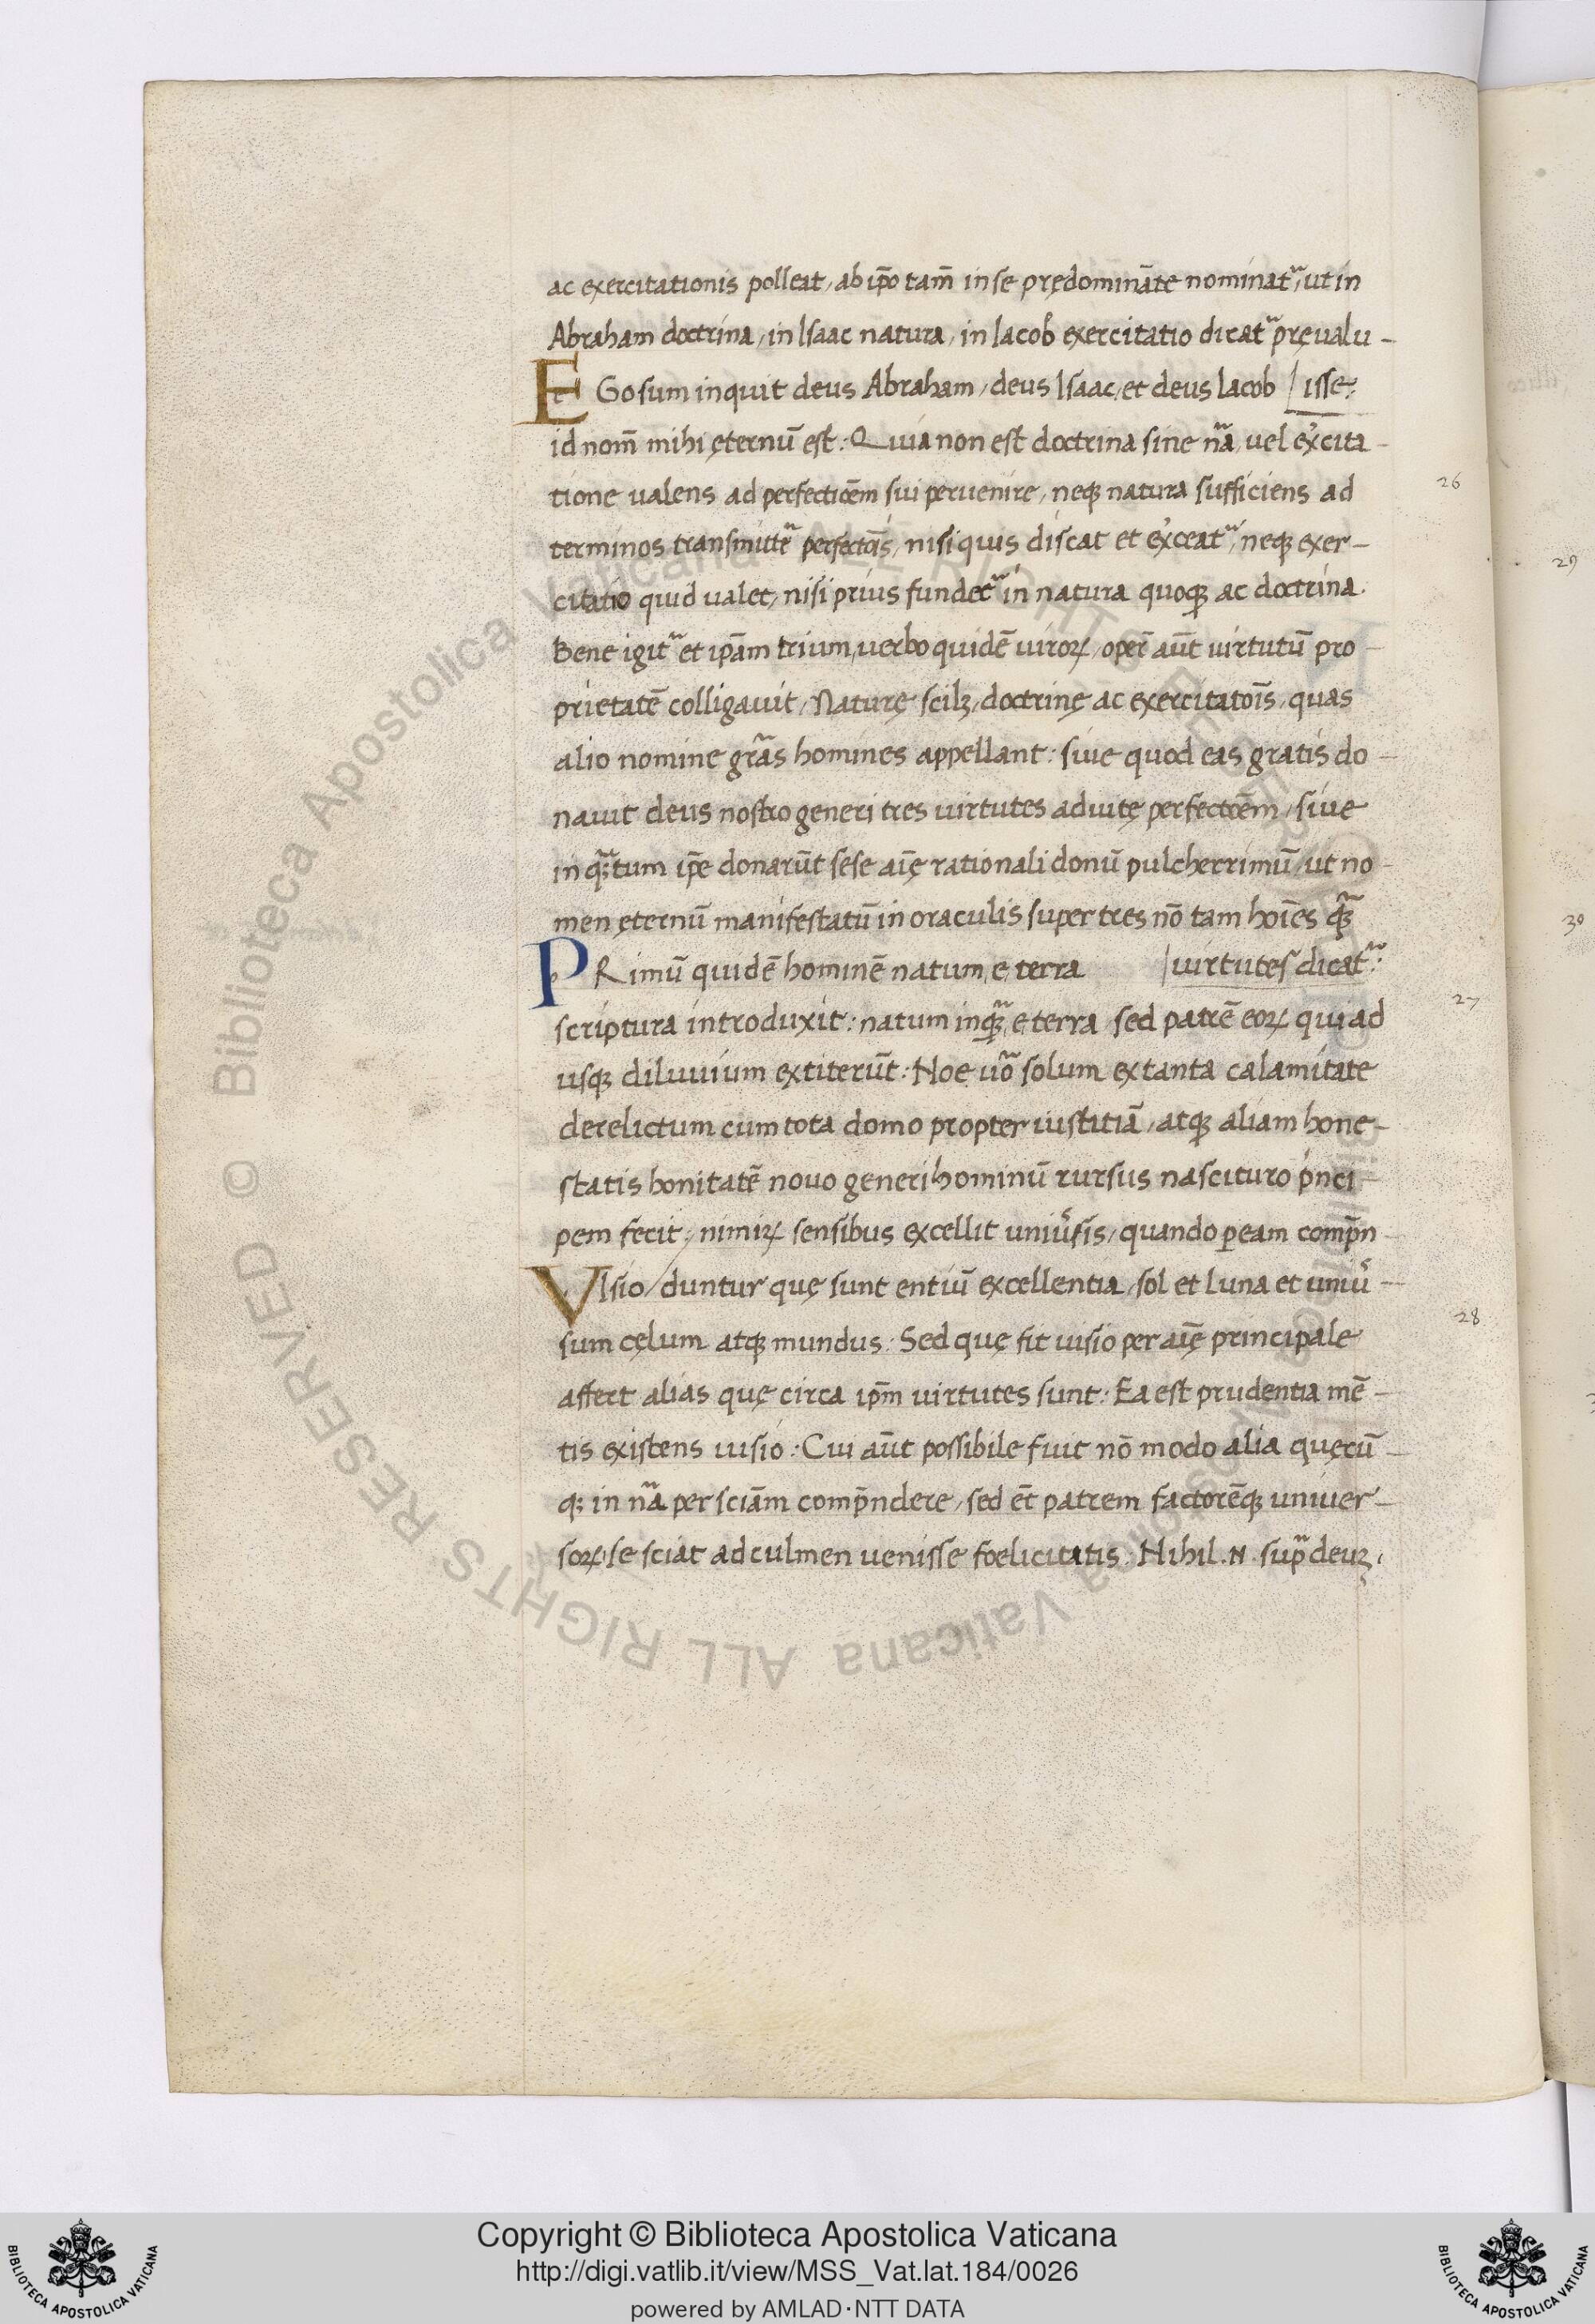 ac exercitationis polleat, ab ip̄o tam̄ in se prędomināte nominat᷑, ut in
Abraham doctrina, in Isaac natura, in Iacob exercitatio dicat᷑ pręualu-
EGo sum inquit deus Abraham, deus Isaac, et deus Iacob | isse:
id nom̄ mihi ęternū est: Quia non est doctrina sine nr̄a, uel ex̓cita-
tione ualens ad perfectiōem sui peruenire, neqꝫ natura sufficiens ad
terminos transmittē perfectōis, nisi quis discat et ex̓ceat᷑, neqꝫ exer-
citatio quid ualet, nisi prius fundet᷑ in natura quoqꝫ ac doctrina.
Bene igit᷑ et ip̄am trium, uerbo quidē uiroꝝ, oper̄ aūt uirtutū pro-
prietatē colligauit, Naturę scilꝫ, doctrinę ac exercitatōis, quas
alio nomine gr̄as homines appellant: siue quod eas gratis do-
nauit deus nostro generi tres uirtutes ad uitę perfectōem, siue
in qꝫᷓtum ip̄e donarūt sese aīę rationali donū pulcherrimū, ut no-
men ęternū manifestatū in oraculis super tres nō tam hoīes qꝫᷓ
PRimū quidē hominē natum, e terra | uirtutes dicat᷑:
scriptura introduxit: natum inqꝫᷓ, e terra sed patrē eoꝝ qui ad
usqꝫ diluuium extiterūt: Noe uō solum ex tanta calamitate
derelictum cum tota domo propter iustitiā, atqꝫ aliam hone-
statis bonitatē nouo generi hominū rursus nascituro p̓nci-
pem fecit, nimiꝝ sensibus excellit uniu̓sis, quando ꝑ eam comp̄n-
VIsio / duntur quę sunt entiū excellentia, sol et luna et uniu̓-
sum cęlum atqꝫ mundus: Sed quę fit uisio per aīę principale
affert alias quę circa ip̄m uirtutes sunt: Ea est prudentia mē-
tis existens uisio: Cui aūt possibile fuit nō modo alia quęcū-
qꝫ in nr̄a per sciām comp̄ndere, sed et̄ patrem factorēqꝫ uniuer-
soꝝ, se sciat ad culmen uenisse foelicitatis: Nihil .N. supᷓ deuꝫ,
26
27
28
29
30
Copyright © Biblioteca Apostolica Vaticana
http://digi.vatlib.it/view/MSS_Vat.lat.184/0026
powered by AMLAD·NTT DATA
BIBLIOTECA APOSTOLICA VATICANA
BIBLIOTECA APOSTOLICA VATICANA
© Biblioteca Apostolica Vaticana ALL RIGHTS RESERVED